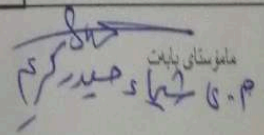 مامۆستای بابەت
م.ی شیماء حیدر کریم